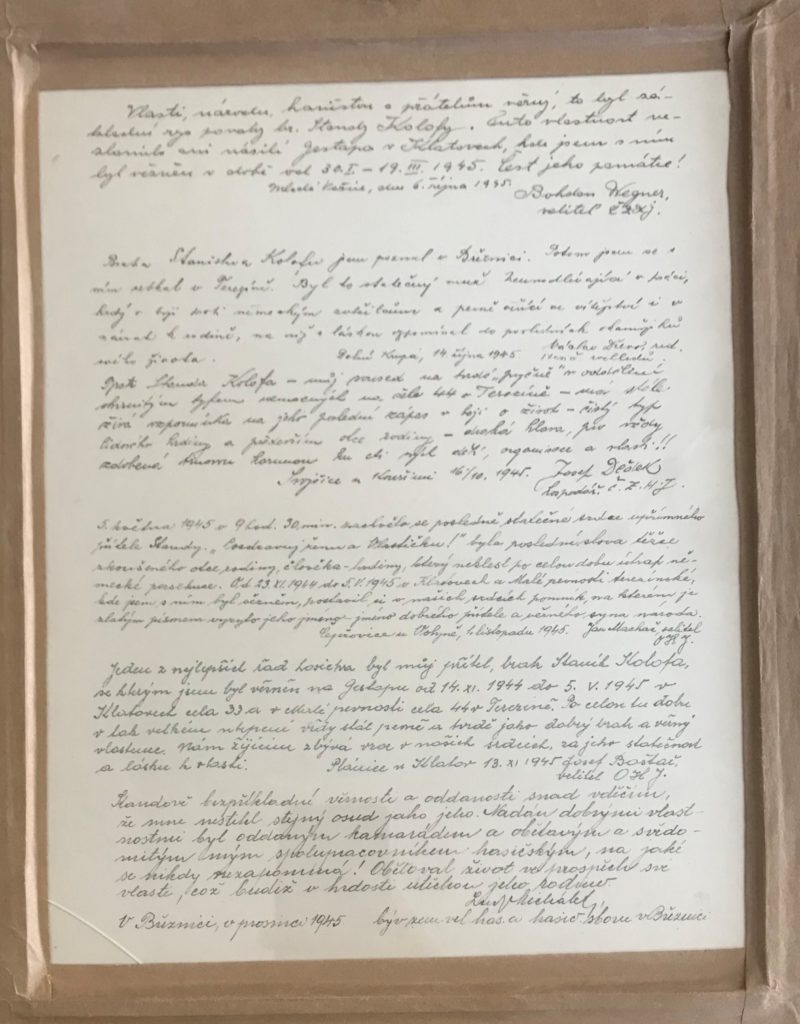 Vlasti, národu, hasičstvu a přátelům věrný, to byl zá-
kladní rys povahy br. Standy Kolofy. Tuto vlastnost ne-
zlomilo ani násilí Gestapa v Klatovech, kde jsem s ním
byl vězněn v době od 30.I - 19.III. 1945. Čest jeho památce!
dne 6. října 1945.
Bohdan Wegner,
velitel
Bratra Stanislava Kolofu jsem poznal v Březnici. Potom jsem se s
ním setkal v Terezíně. Byl to statečný muž v práci,
tvrdý v boji proti německým a pevně věřící ve vítězství i v
návrat k rodině, na niž s láskou vzpomínal do posledních okamžiků
svého života. Dolní Krupá, 14. října 1945 Václav
Bratr Standa Kolofa - můj soused na tvrdé „pryčně" v oddělení
skvrnitým tyfem nemocných na cele 44 v Terezíně - má stálé
živá vzpomínka na jeho poslední zápas v boji o život - čistý typ
lidového hrdiny a především otce rodiny - drahá hlava, pro vždy
ozdobená trnovou korunou ku cti svých dětí, organisace a vlasti!!
Svojšice u Kouřimi 16/10. 1945. Josef
5. května 1945 v 9 hod. 30 min. se poslední statečné srdce upřímného
přítele Standy. „Pozdravuj ženu a Vlastičku!" byla poslední slova těžce
zkoušeného otce rodiny, člověka-hrdiny, který neklesl po celou dobu útrap, ně-
mecké persekuce. Od 23.XI.1944 do 5.V.1945 v Klatovech a Malé pevnosti terezínské,
kde jsem s ním byl vězněm, postavil si v našich srdcích pomník, na kterém je
zlatým písmem vyryto jeho jméno - jméno dobrého přítele a věrného syna národa.
Cepřovice u Volyně, 1. listopadu 1945. Jan Machač velitel
O H J.
Jeden z nejlepších řad hasičstva byl můj přítel, bratr Staník Kolofa,
se kterým jsem byl vězněn na Gestapu od 14. XI. 1944 do 5. V. 1945 v
Klatovech cela 33 a v Malé pevnosti cela 44 v Terezíně. Po celou tu dobu
v tak velkém utrpení vždy stál pevně a tvrdě jako dobrý bratr a věrný
vlastenec. Nám žijícím zbývá vzor v našich srdcích, za jeho statečnost
a lásku k vlasti. Plánice u Klatov 13. XI 1945 Josef
velitel O H J.
Standově bezpříkladné věrnosti a oddanosti snad vděčím,
že mne nestihl stejný osud jako jeho. Nadán dobrými vlast-
nostmi byl oddaným kamarádem a obětavým a svědo-
mitým mým spolupracovníkem hasičským, na jaké
se nikdy nezapomíná! Obětoval život ve prospěch své
vlasti, což budiž v hrdosti útěchou jeho rodině
Michálek
V Březnici, v prosinci 1945. býv. zem. vel. has. a hasič. sboru v Březnici